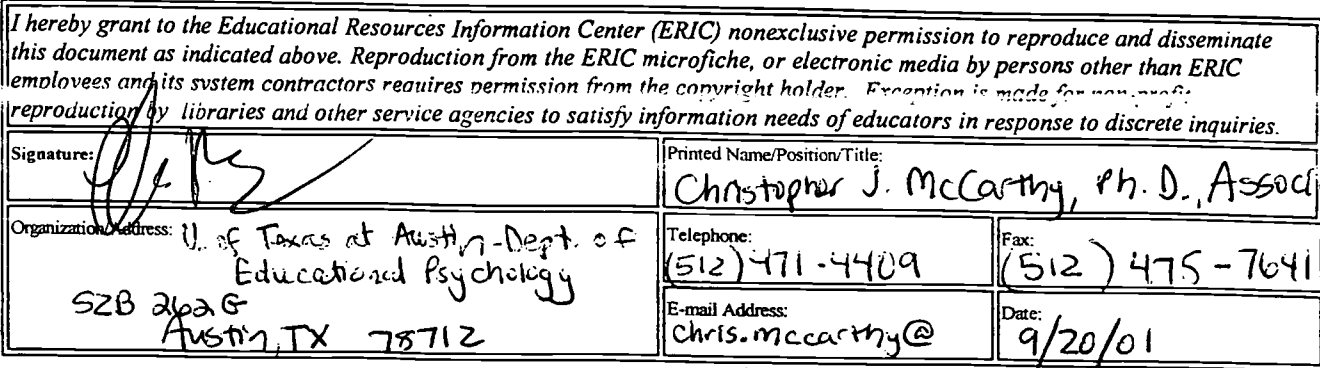 I hereby grant to the Educational Resources Information Center (ERIC) nonexclusive permission to reproduce and disseminate
this document as indicated above. Reproduction from the ERIC microfiche, or electronic media by persons other than ERIC
employees and its system contractors requires permission from the copyright holder. Exception is made for non-profit
reproduction by libraries and other service agencies to satisfy information needs of educators in response to discrete inquiries.
Signature:
Printed Name/Position/Title:
Christopher J. McCarthy, Ph. D., Associ
Organization/Address: U. of Texas at Austin-Dept. of
Educational Psychology
SZB 262G
Austin, TX 78712
Telephone:
(512) 471-4409
Fax:
(512) 475-7641
E-mail Address:
Chris.mccarthy@
Date:
9/20/01